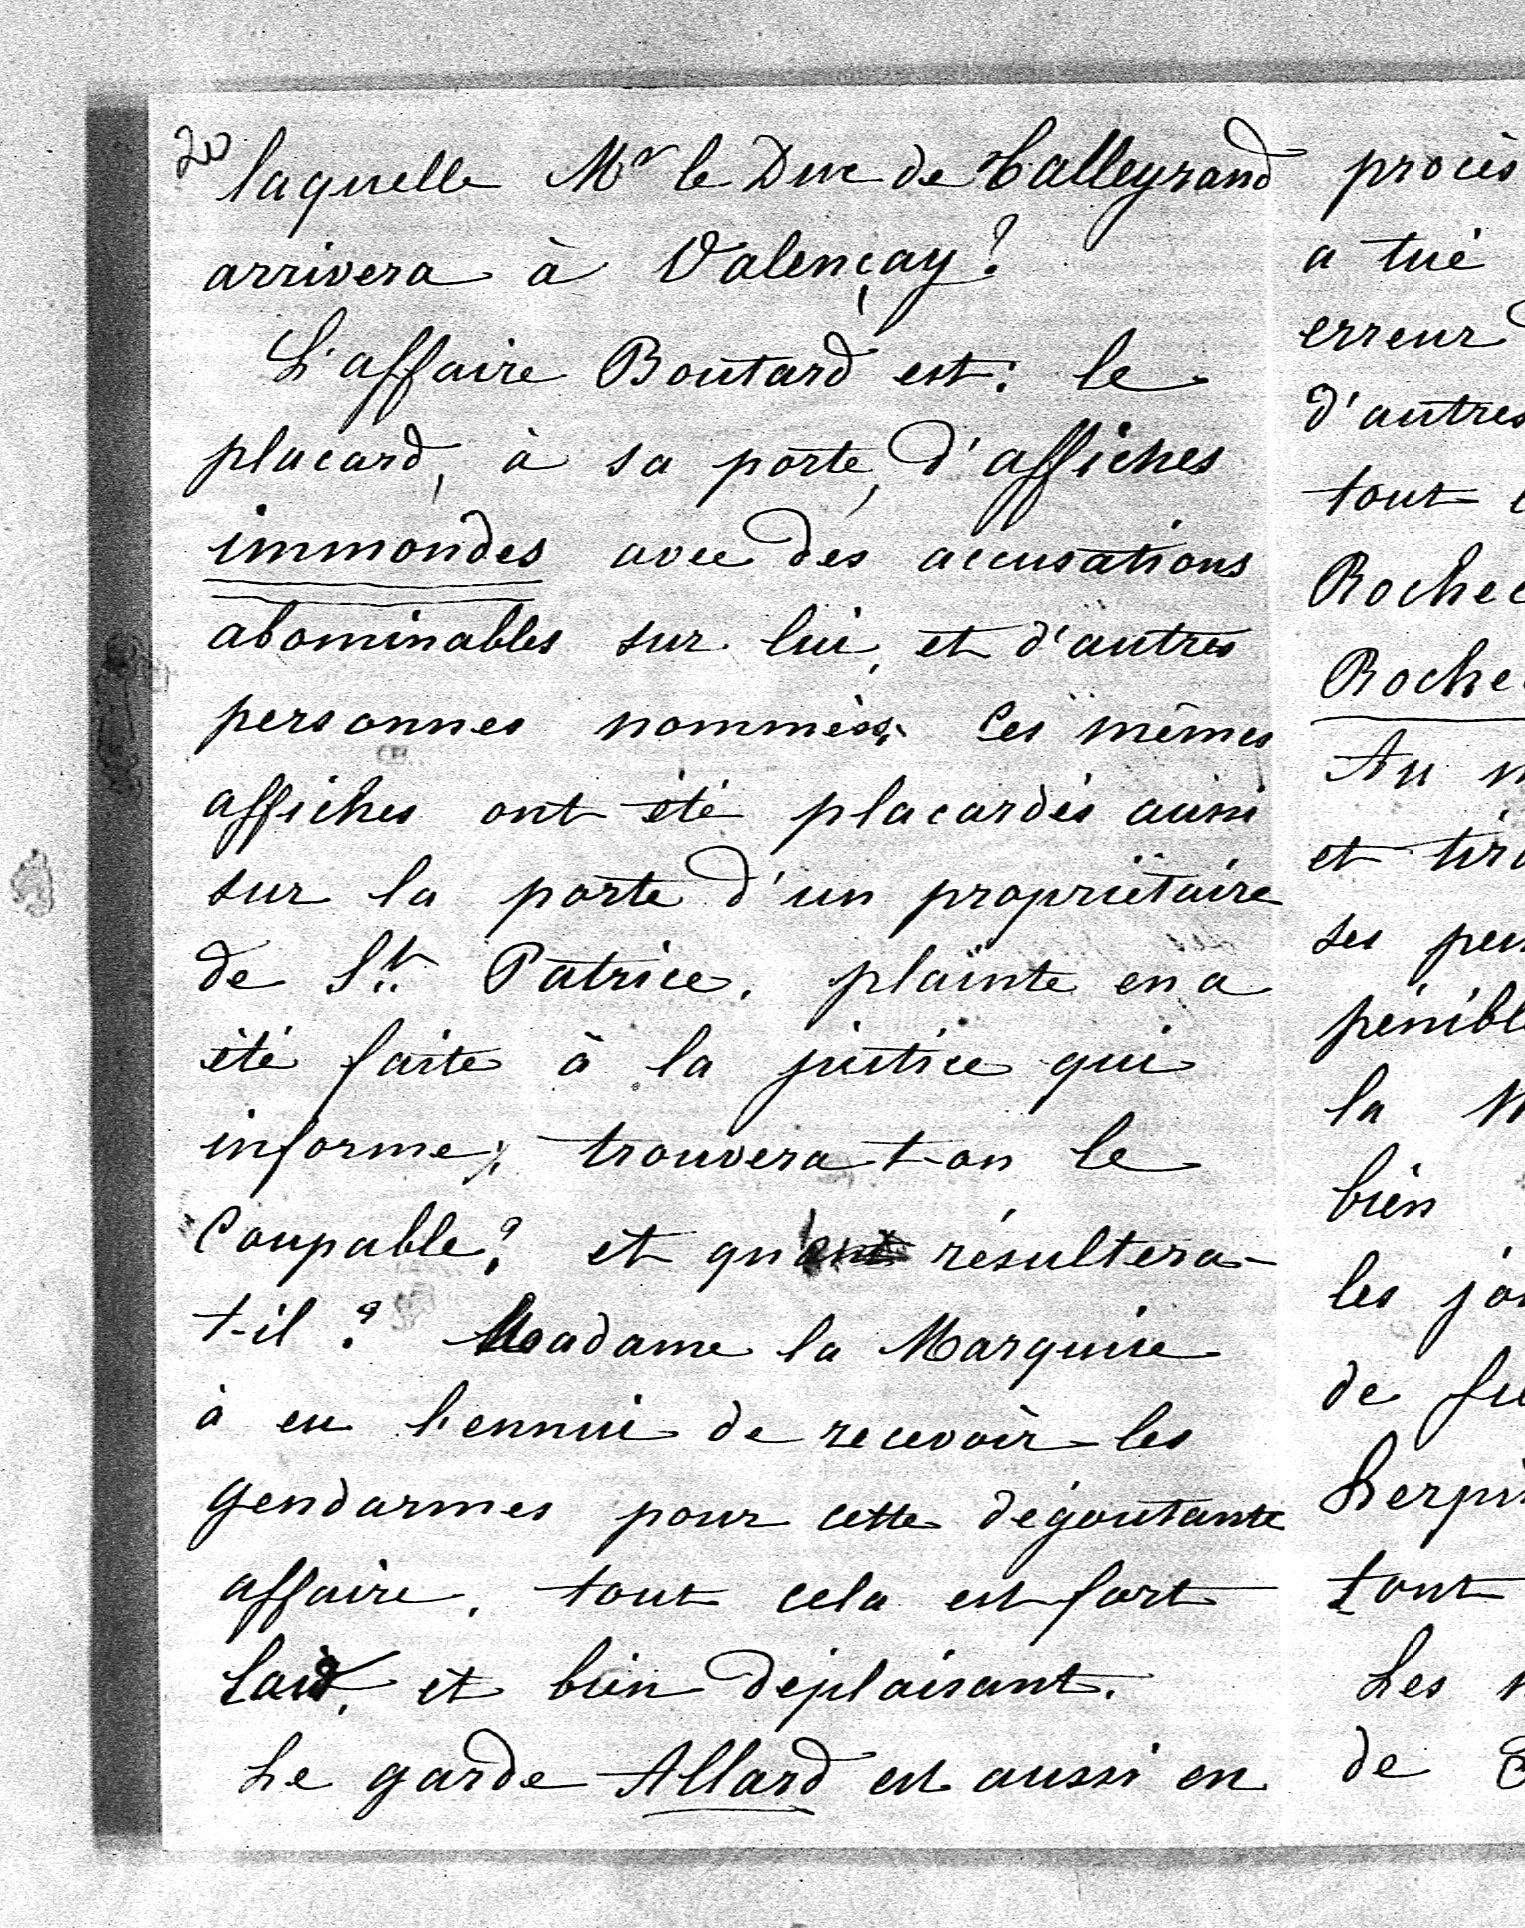 20
laquelle Mr le Duc de Talleyrand
arrivera à Valençay?
L'affaire Boutard est: le
placard, à sa porte, d'affiches
immondes avec des accusations
abominables sur lui, et d'autres
personnes nommées. Ces mêmes
affiches ont été placardés aussi
sur la porte d'un propriétaire
de St. Patrice. plainte en a
été faite à la justice qui
informe; trouvera t-on le
Coupable? et qu'en résultera-
t-il? Madame la Marquise
à eu l'ennui de recevoir les
gendarmes pour cette dégoutante
affaire. tout cela est fort
laid, et bien déplaisant.
Le garde Allard est aussi en
procès
a tué
erreur
d'autres
tout
Au
et
ses
la
bien
les
de
tout
Les
de